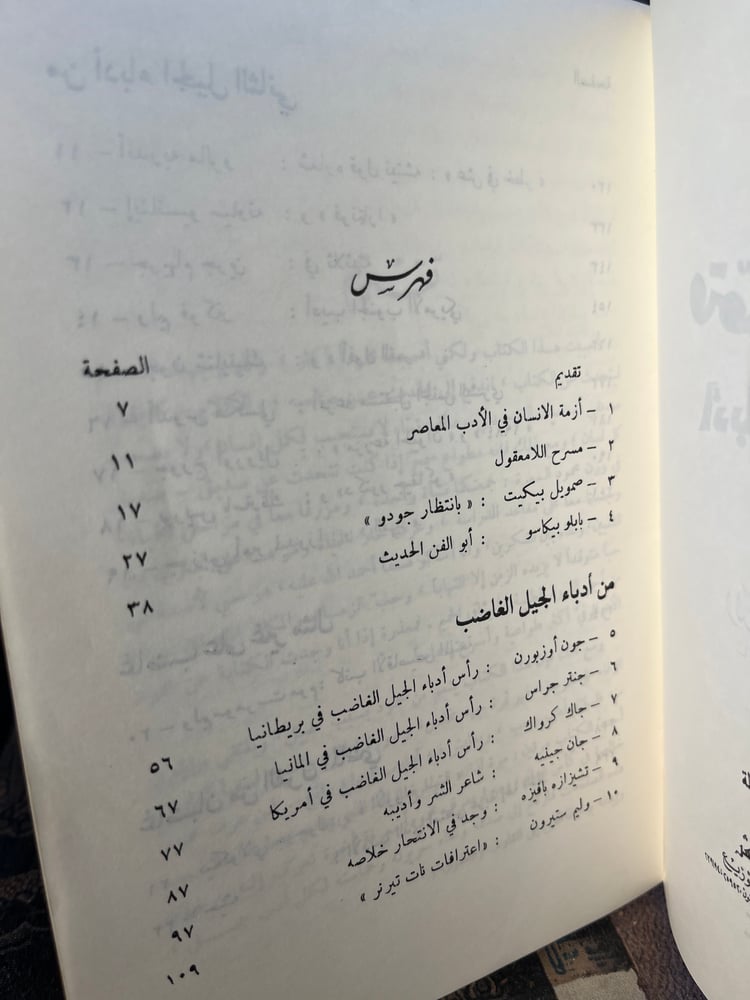 فهرس
الصفحة
تقديم ٧
١ – أزمة الانسان في الأدب المعاصر ١١
٢ – مسرح اللامعقول ١٧
٣ – صمويل بيكيت : « بانتظار جودو » ٢٧
٤ – بابلو بيكاسو : أبو الفن الحديث ٣٨
من أدباء الجيل الغاضب
٥ – جون أوزبورن : رأس أدباء الجيل الغاضب في بريطانيا ٥٦
٦ – جنتر جراس : رأس أدباء الجيل الغاضب في المانيا ٦٧
٧ – جاك كرواك : رأس أدباء الجيل الغاضب في أمريكا ٧٧
٨ – جان جينيه : شاعر الشر وأديبه ٨٧
٩ – تشيزاره بافيزه : وجد في الانتحار خلاصه ٩٧
١٠ – وليم ستيرون : « اعترافات نات تيرنر » ١٠٩